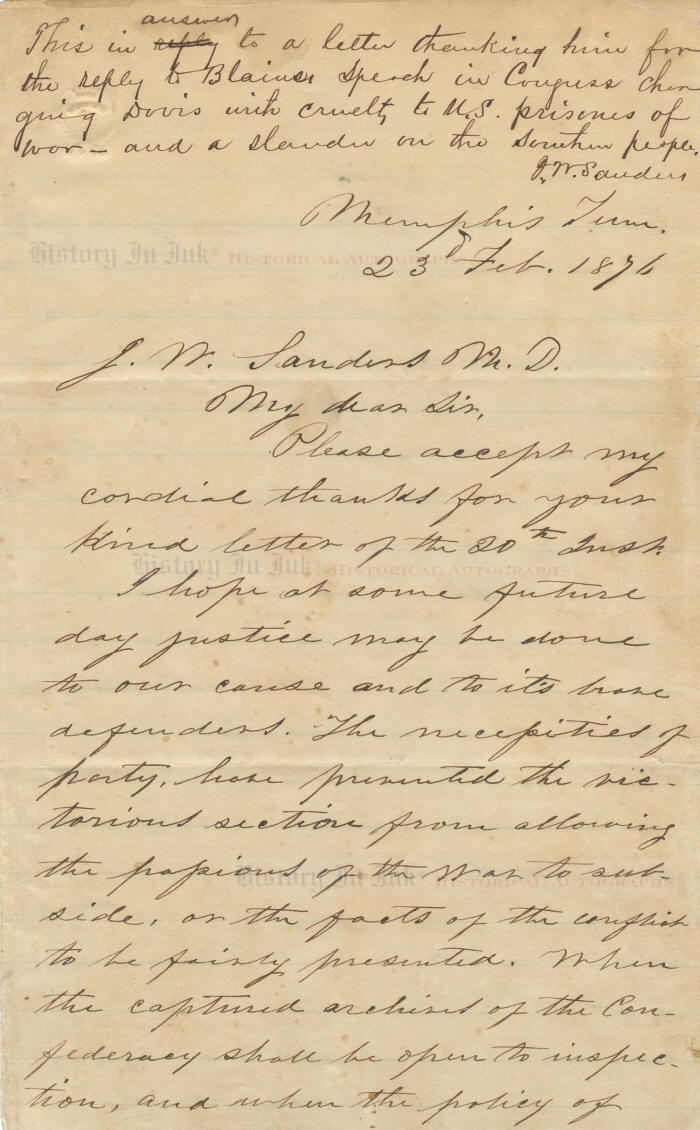 answer
This in reply to a letter thanking him for
the reply to Blaines Speach in Congress char
ging Davis with cruelty to U.S. prisones of
war - and a slander on the Southern people.
J. W. Sanders
Memphis Tenn.
23d Feb. 1876
History In Ink® HISTORICAL AUTOGRAPHS
J. W. Sanders M. D.
My dear Sir,
Please accept my
cordial thanks for your
kind letter of the 20th Inst.
History In Ink® HISTORICAL AUTOGRAPHS
I hope at some future
day justice may be done
to our cause and to it's brave
defenders. The necessities of
party, have prevented the vic-
torious section from allowing
the passions of the War to sub-
History In Ink® HISTORICAL AUTOGRAPHS
side, or the facts of the conflict
to be fairly presented. When
the captured archives of the Con-
federacy shall be open to inspec-
tion, and when the policy of